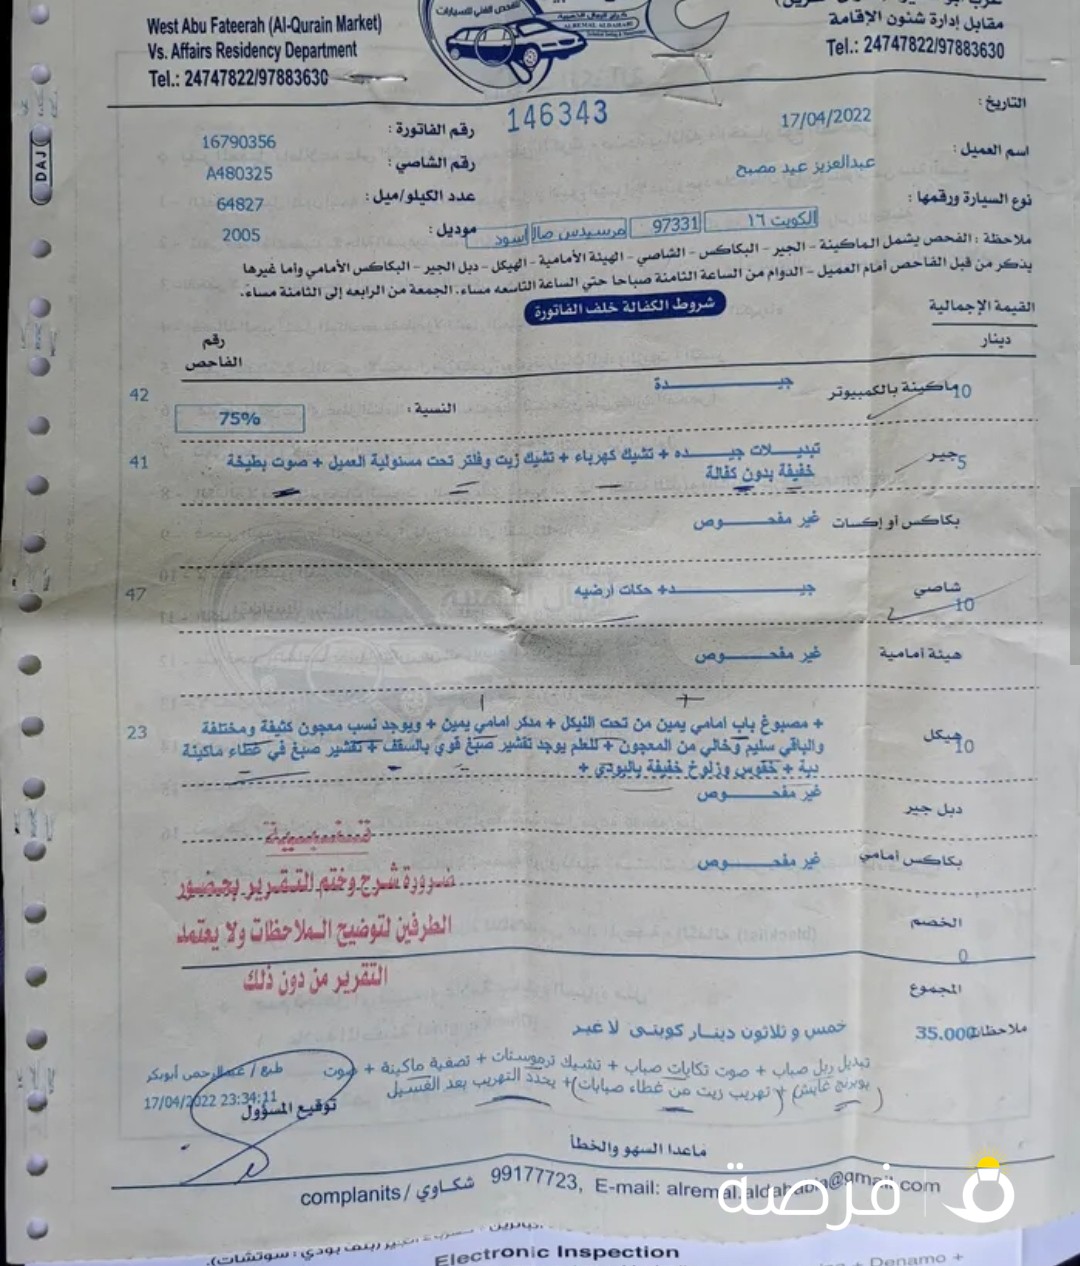 West Abu Fateerah (Al-Qurain Market)
Vs. Affairs Residency Department
Tel.: 24747822/97883630
مقابل إدارة شئون الإقامة
Tel.: 24747822/97883630
DAJ
التاريخ :
17/04/2022
146343
رقم الفاتورة :
16790356
اسم العميل :
عبدالعزيز عيد مصبح
رقم الشاصي :
A480325
نوع السيارة ورقمها :
الكويت ١٦
97331
مرسيدس صال
أسود
عدد الكيلو/ميل :
64827
موديل :
2005
ملاحظة : الفحص يشمل الماكينة - الجير - البكاكس - الشاصي - الهيئة الأمامية - الهيكل - دبل الجير - البكاكس الأمامي وأما غيرها
يذكر من قبل الفاحص أمام العميل - الدوام من الساعة الثامنة صباحا حتي الساعة التاسعه مساء. الجمعة من الرابعه إلى الثامنة مساء.
شروط الكفالة خلف الفاتورة
القيمة الإجمالية
دينار
رقم
الفاحص
ماكينة بالكمبيوتر
10
جيــــــــدة
42
النسبة :
75%
جير
5
تبديــــلات جيــــده + تشيك كهرباء + تشيك زيت وفلتر تحت مسئولية العميل + صوت بطيخة
خفيفة بدون كفالة
41
بكاكس أو إكسات
غير مفحــــــوص
شاصي
10
جيــــــــد+ حكات ارضيه
47
هيئة أمامية
غير مفحــــــوص
هيكل
10
+ مصبوغ باب امامي يمين من تحت النيكل + مدكر امامي يمين + ويوجد نسب معجون كثيفة ومختلفة
والباقي سليم وخالي من المعجون + للعلم يوجد تقشير صبغ قوي بالسقف + تقشير صبغ في غطاء ماكينة
دبة + خفوس وزلوخ خفيفة بالبودي +
23
دبل جير
غير مفحــــــوص
بكاكس أمامي
غير مفحــــــوص
الخصم
0
المجموع
35.000
ضرورة شرح وختم التقرير بحضور
الطرفين لتوضيح الملاحظات ولا يعتمد
التقرير من دون ذلك
خمس و ثلاثون دينار كويتى لا غير
ملاحظات
تبديل ربل صباب + صوت تكايات صباب + تشيك ترموستات + تصفية ماكينة + صوت
بوبرنج غايش + تهريب زيت من غطاء صبابات + يحدد التهريب بعد الغسيل
طبع / عبدالرحمن أبوبكر
17/04/2022 23:34:11
توقيع المسؤول
ماعدا السهو والخطأ
complanits / شكاوي 99177723, E-mail: alremal.aldahabia@gmail.com
فرصة
Electronic Inspection
Denamo +